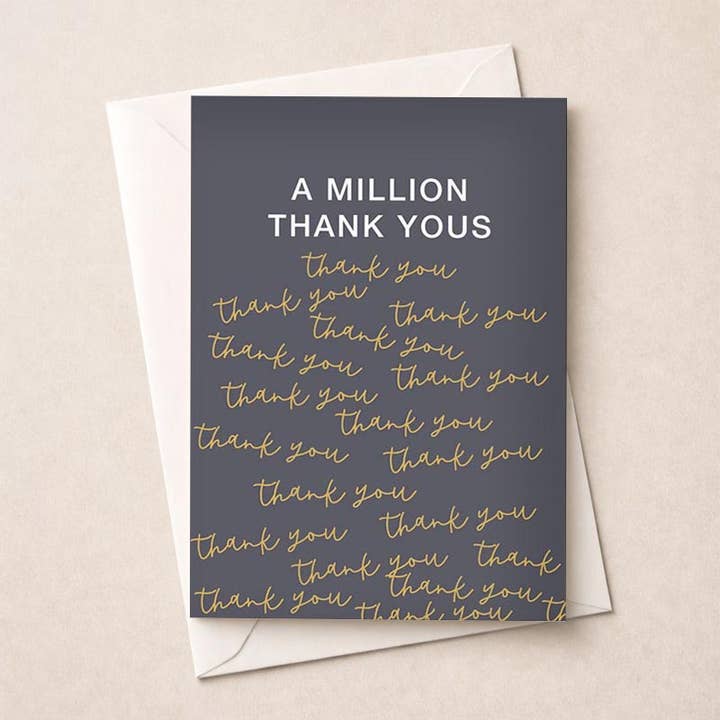 A MILLION
THANK YOUS
thank you
thank you
thank you
thank you
thank you
thank you
thank you
thank you
thank you
thank you
thank you
thank you
thank you
thank you
thank
thank you
thank you
thank you
th